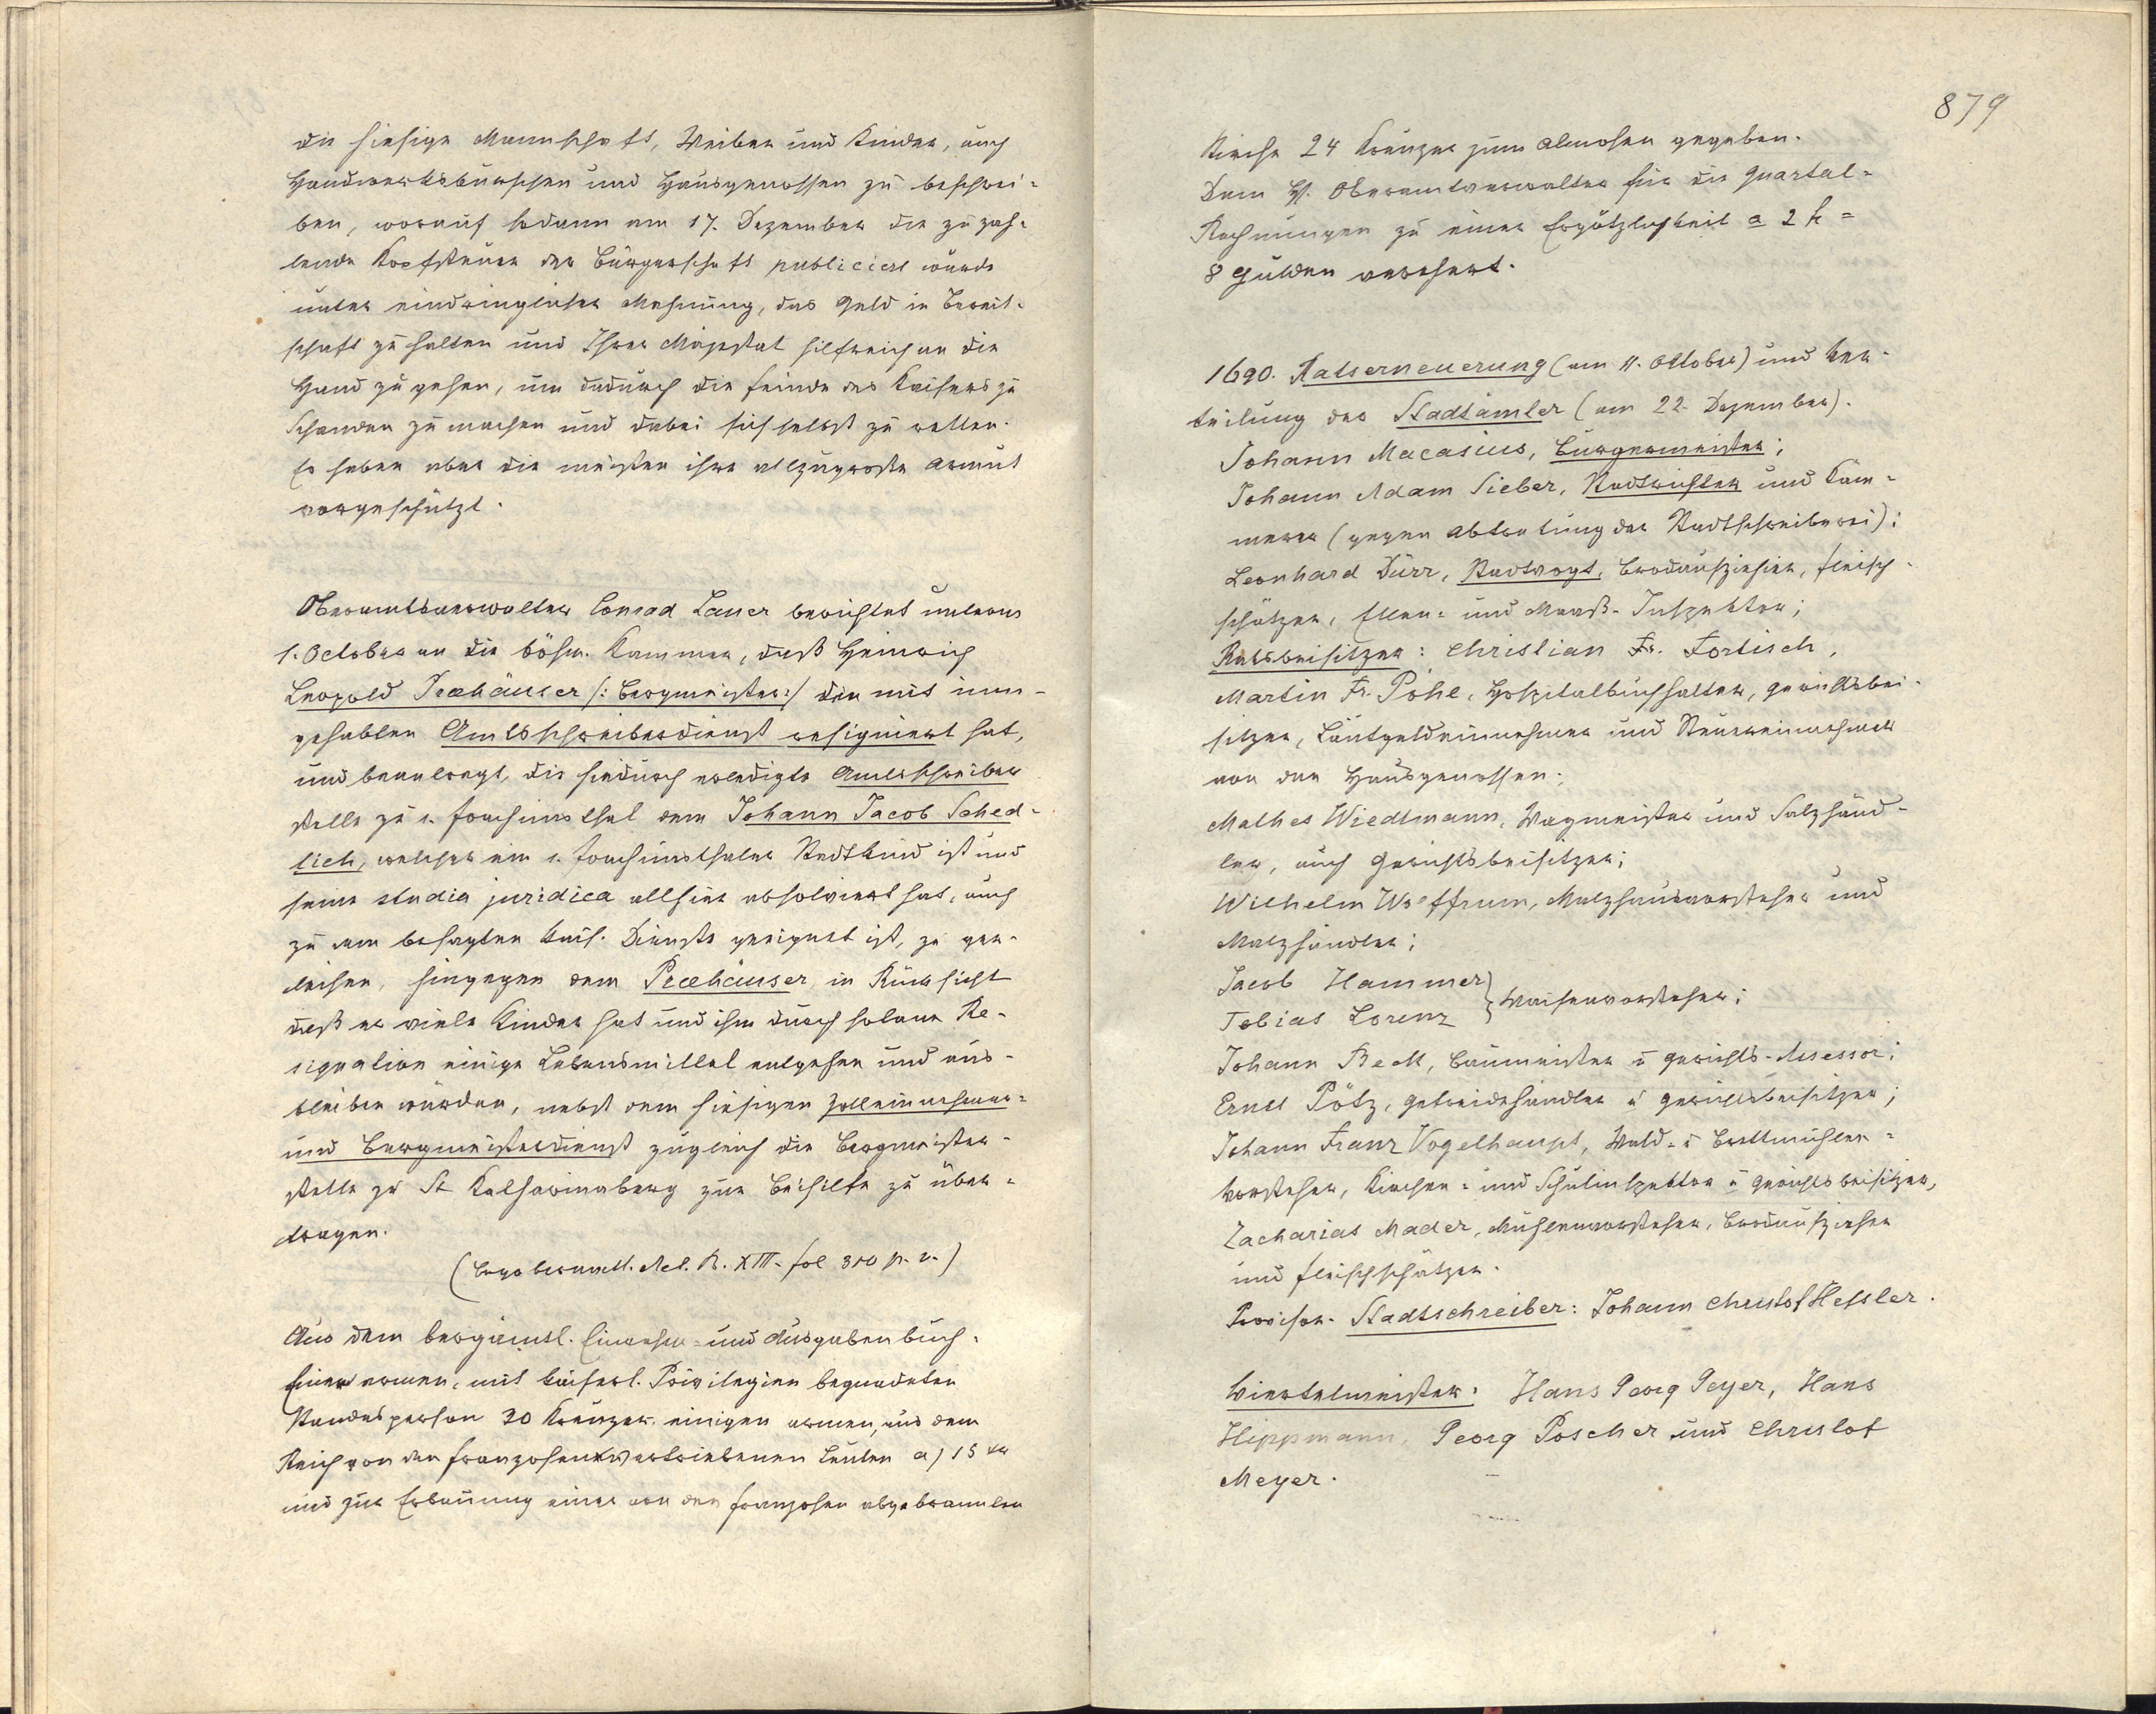 die hiesige Mannschaft, Weiber und Kinder, auch
Handwerksburschen und Hausgenossen zu beschrei-
ben, worauf sodann am 17. Dezember die zu zah-
lende Kopfsteuer der Bürgerschaft publiciert wurde
unter eindringlicher Mahnung, das Geld in Bereit-
schaft zu halten und Ihrer Majestät hilfreich an die
Hand zu gehen, um dadurch die Feinde des Kaisers zu
Schanden zu machen und dabei sich selbst zu retten.
Es haben aber die meisten ihre allzugroße Armut
vorgeschützt.
Oberamtsverwalter Conrad Lauer berichtet unterm
1. October an die böhm. Kammer, daß Heinrich
Leopold Peehäuser /: Bergmeister :/ den mit inn-
gehabten Amtsschreiberdienst resigniert hat,
und beantragt, die hiedurch erledigte Amtsschreiber
stelle zu s. Joachimsthal dem Johann Jacob Sched-
lich, welcher ein s. Joachimsthaler Stadtkind ist und
seine studia juridica allhier absolviert hat, auch
zu dem besagten kais. Dienste geeignet ist, zu ver-
leihen, hingegen dem Peehäuser in Rücksicht
daß er viele Kinder hat und ihm durch solane Re-
signation einige Lebensmittel entgehen und aus-
bleiben würden, nebst dem hiesigen Zolleinnehmer-
und Bergmeisterdienst zugleich die Bergmeister-
stelle zu St Katharinaberg zur Beihilfe zu über-
tragen.
(Bergoberamtl. Rel. B. XIII. fol 310 p. v.)
Aus dem bergämtl. Einnahm- und Ausgabenbuch.
Einer armen, mit kaiserl. Privilegien begnadeten
Standesperson 30 Kreuzer. einigen armen, aus dem
Reich von den Franzosen vertriebenen Leuten a) 15 xr
und zur Erbauung einer von den Franzosen abgebrannten
879
Kirche 24 Kreuzer zum Almosen gegeben.
Dem H. Oberamtsverwalter für die Quartal-
Rechnungen zu einer Ergötzlichkeit a 2 fl =
8 Gulden verehrt.
1690. Ratserneuerung (am 11. Oktober) und Ver-
teilung der Stadtämter (am 22. Dezember).
Johann Macasius, Bürgermeister;
Johann Adam Sieber, Stadtrichter und Käm-
merer (gegen Abtretung der Stadtschreiberei);
Leonhard Dürr, Stadtvogt, Brodaufzieher, Fleisch-
schätzer, Ellen- und Maaß-Inspektor;
Ratsbeisitzer: Christian Fr. Fortisch,
Martin Fr. Pöhl, Hospitalbuchhalter, Gerichtsbei-
sitzer, Läutgeldeinnehmer und Steuereinnehmer
von den Hausgenossen;
Mathes Wiedtmann, Wagmeister und Salzhänd-
ler, auch Gerichtsbeisitzer;
Wilhelm Wolffrum, Malzhausvorsteher und
Malzhändler;
Jacob Hammer
Tobias Lorenz } Waisenvorsteher;
Johann Beck, Baumeister u Gerichts-Assessor;
Ernst Pötz, Getreidehändler u Gerichtsbeisitzer;
Johann Franz Vogelhaupt, Wald- u Brettmühlen-
vorsteher, Kirchen- und Schulinspektor u Gerichtsbeisitzer,
Zacharias Mader, Mühlenvorsteher, Brodaufzieher
und Fleischschätzer.
Provisor. Stadtschreiber: Johann Christof Hessler.
Viertelmeister: Hans Georg Peyer, Hans
Hippmann, Georg Poscher und Christof
Meyer.